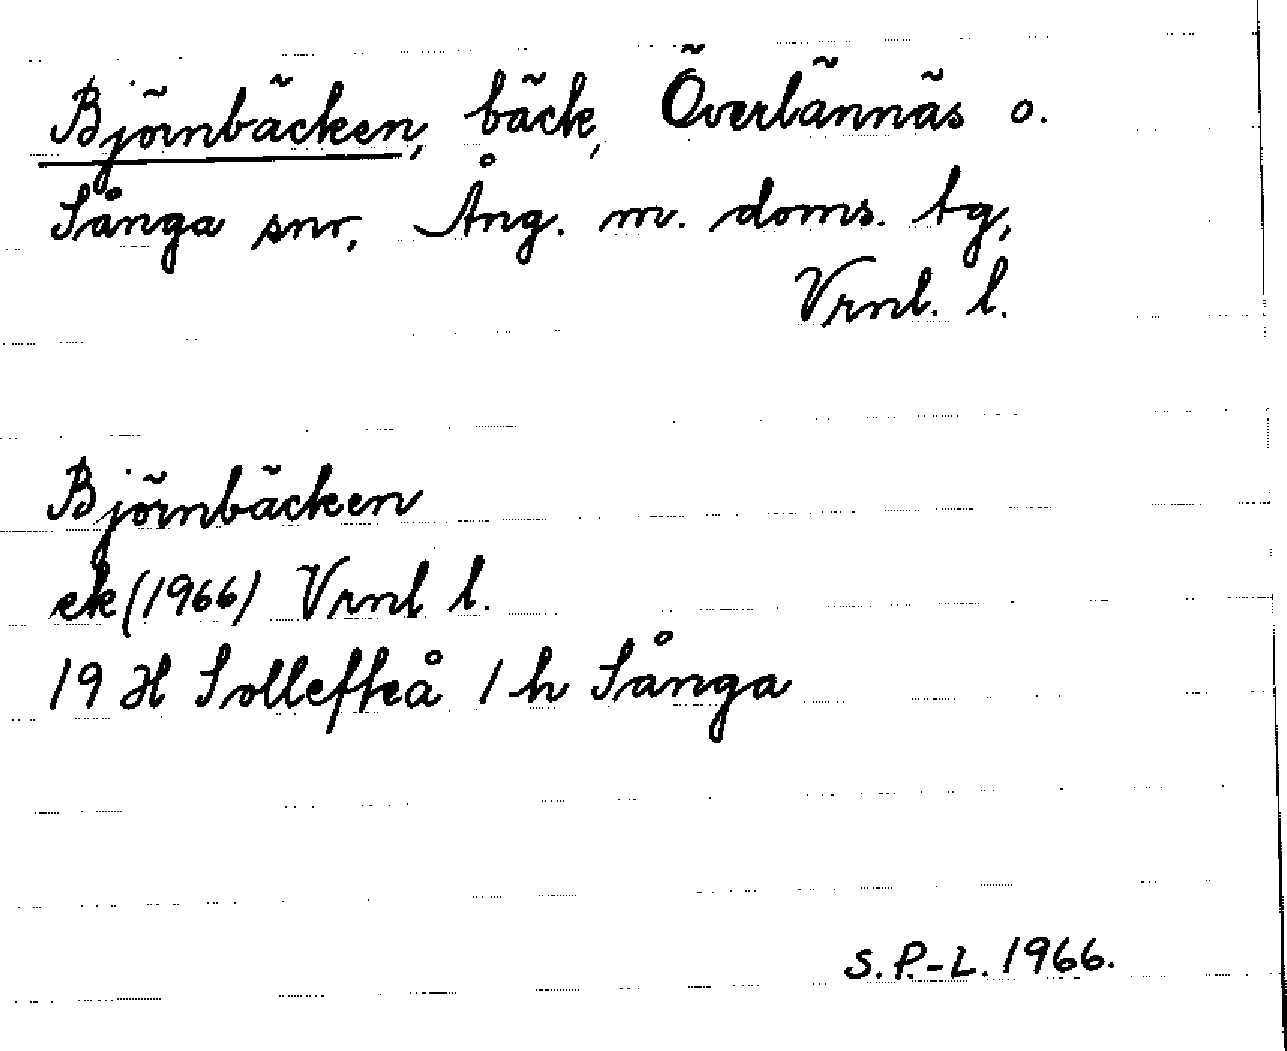 Björnbäcken, bäck, Överlännäs o.
Sånga snr, Ång. m. doms. tg,
Vrnl. l.
Björnbäcken
ek (1966) Vrnl l.
19 H Sollefteå 1 h Sånga
S.P.-L. 1966.